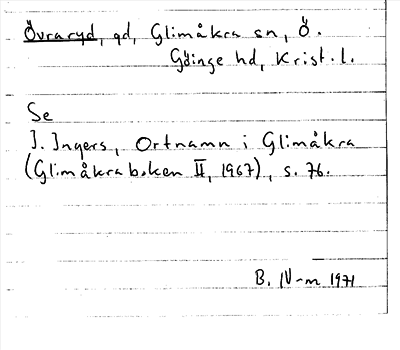 Övraryd, gd, Glimåkra sn, Ö.
Göinge hd, Krist. l.
Se
I. Ingers, Ortnamn i Glimåkra
(Glimåkraboken II, 1967), s. 76.
B. N-m 1971